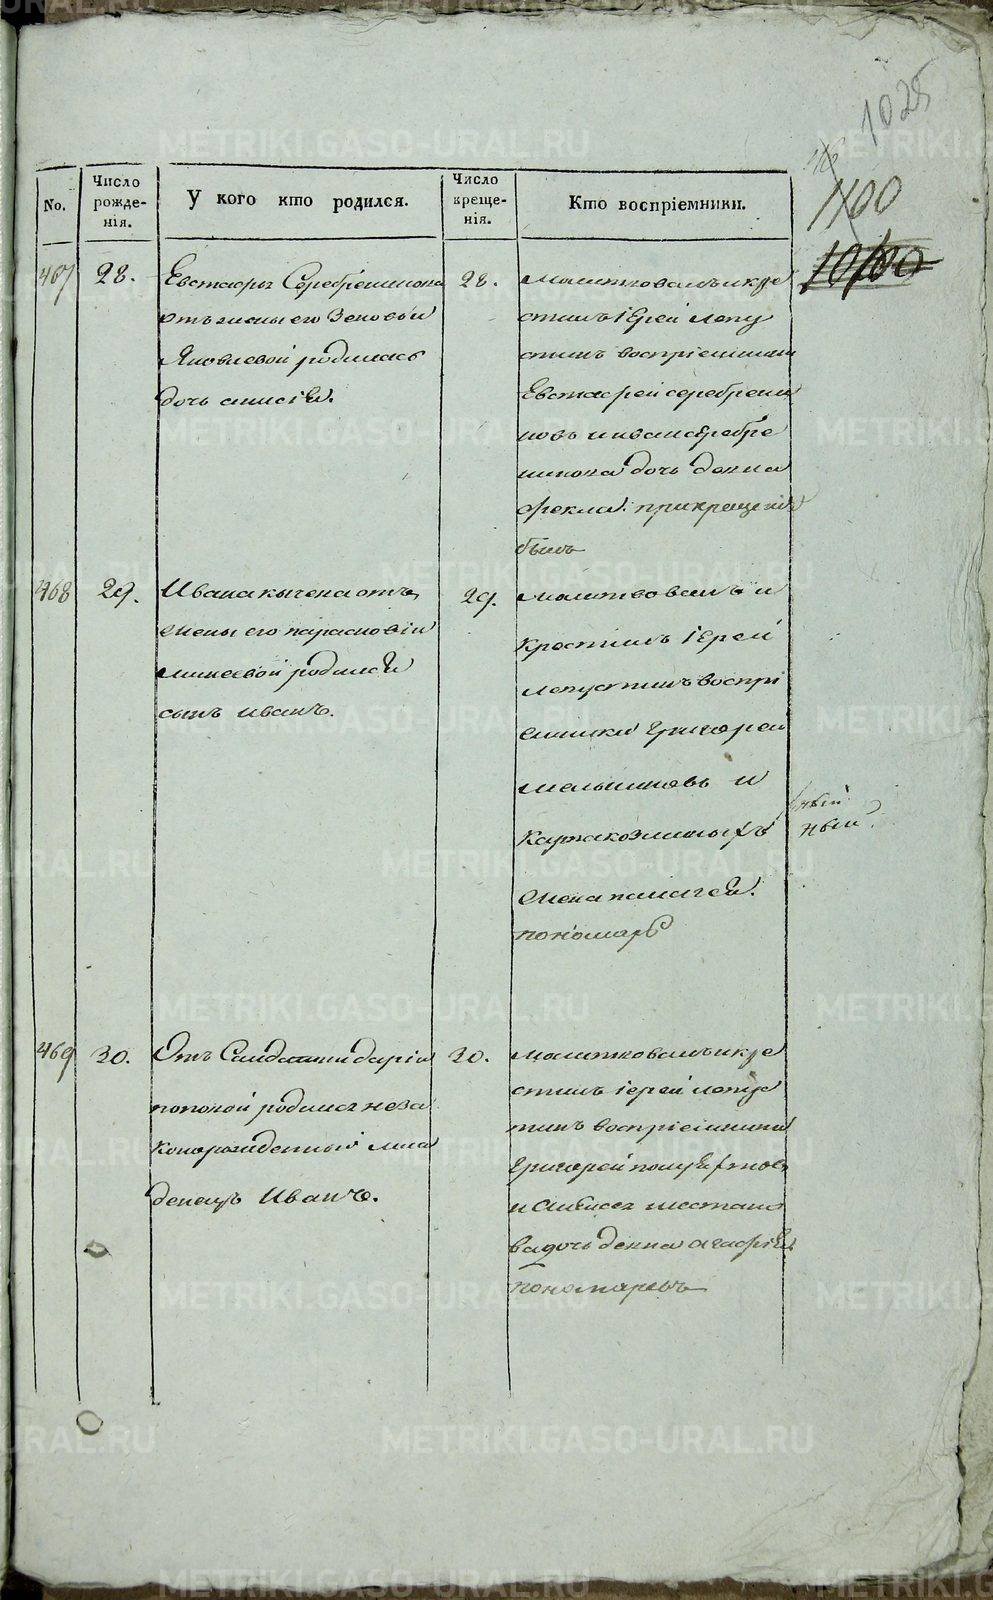 1025
1100
No.
Число рожде-нія.
У кого кто родился.
Число креще-нія.
Кто воспріемники.
467
28.
Евстафья Серебреникова
отъ жены его Зеновіи
Яковлевой родилась
дочь анисія.
28.
молитвовалъ и кре
стилъ іерей лопу
стинъ воспріемники
Евстафей серебрени
ковъ и ивана серебре
никова дочь девица
фекла. при крещеніи
былъ
468
29.
Ивана кычева отъ
жены его парасковіи
минеевой родился
сынъ иванъ.
29.
молитвовалъ и
крестилъ іерей
лопустинъ воспрі
емники григорей
мельниковъ и
жена пелагея.
пономарь
469
30.
Отъ Солдатки даріи
поповой родился неза
коннорожденный мла
денецъ Иванъ.
30.
молитвовалъ и кре
стилъ іерей лопу
тинъ воспріемники
григорей полуехтовъ
и
ва дочь девица агафія.
пономаревъ
METRIKI.GASO-URAL.RU